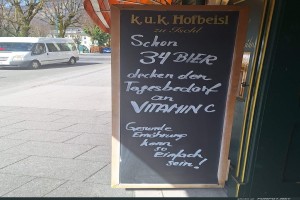 k.u.k. Hofbeisl
zu Ischl
Schon
34 BIER
decken den
Tagesbedarf
an
VITAMIN C
Gesunde
Ernährung
kann
so
einfach
sein!